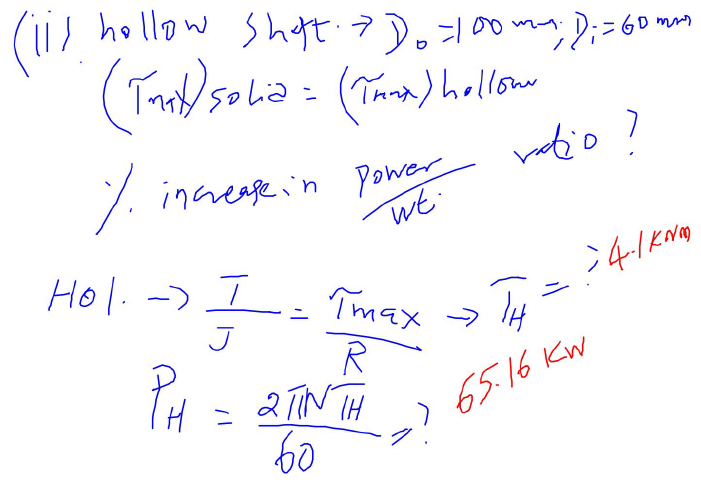 (ii) hollow shaft → D₀ = 100 mm, Dᵢ = 60 mm
(τmax) solid = (τmax) hollow
% increase in Power/wt. ratio ?
Hol. → T/J = τmax/R → T_H = ? 4.1 KNm
P_H = 2πN T_H/60 = ? 65.16 KW